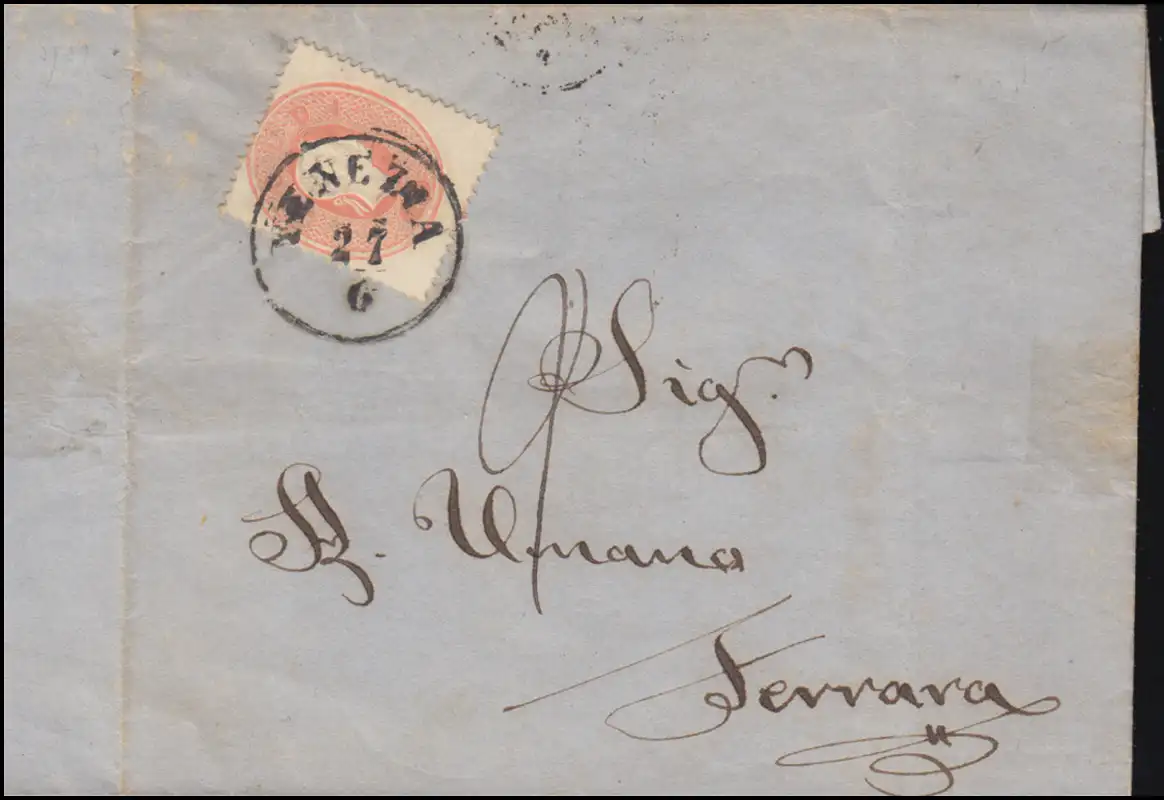 VENEZIA
27
6
Sig.r
Umano
Ferrara